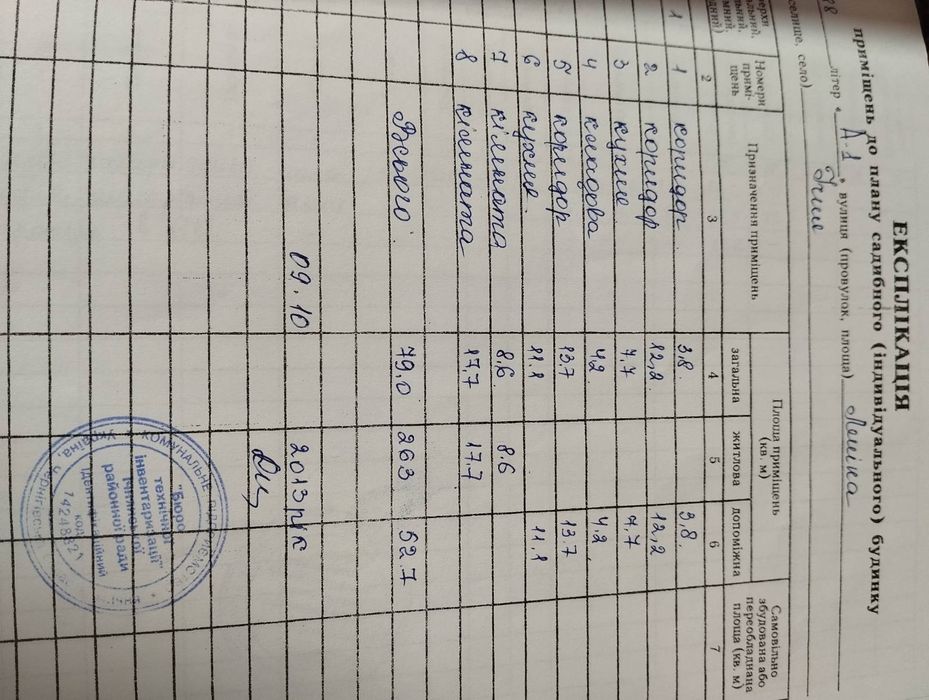 ЕКСПЛІКАЦІЯ
приміщень до плану садибного (індивідуального) будинку
літер « А-1 », вулиця (провулок, площа) Леніна
селище, село) Ічня
Номери примі- щень Призначення приміщень Площа приміщень (кв. м) Самовільно збудована або переобладнана площа (кв. м)
загальна житлова допоміжна
2 3 4 5 6 7
1 1 коридор 3.8. 3,8.
2 коридор 12,2. 12,2
3 кухне 7.7 7.7
4 кладова 4.2 4.2
5 коридор 13.7 13.7
6 кухне. 11.1 11.1
7 кімната 8.6 8.6
8 кімната 17.7 17.7
Всього: 79.0 26.3 52.7
09.10 2013 р/к
КОМУНАЛЬНЕ ПІДПРИЄМСТВО
"Бюро
технічної
інвентаризації"
Ічнянської
районної ради
Ідентифікаційний
код
14248821
Україна, Чернігівська